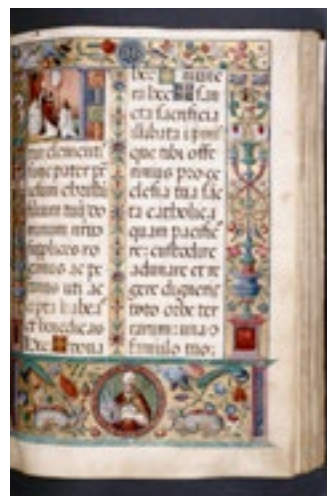 clementi
pater
filium tuū do
minum nrm
supplices ro
gamus ac pe
timus uti ac
cepta habeas
et benedicas
hec dona
hec mune
ra hec san
cta sacrificia
illibata
que tibi offe
rimus pro ec
clesia tua sāc
ta catholica
quam pacifi
re: custodire
adunare et re
gere digneris
toto orbe ter
rarum: una
famulo tuo: